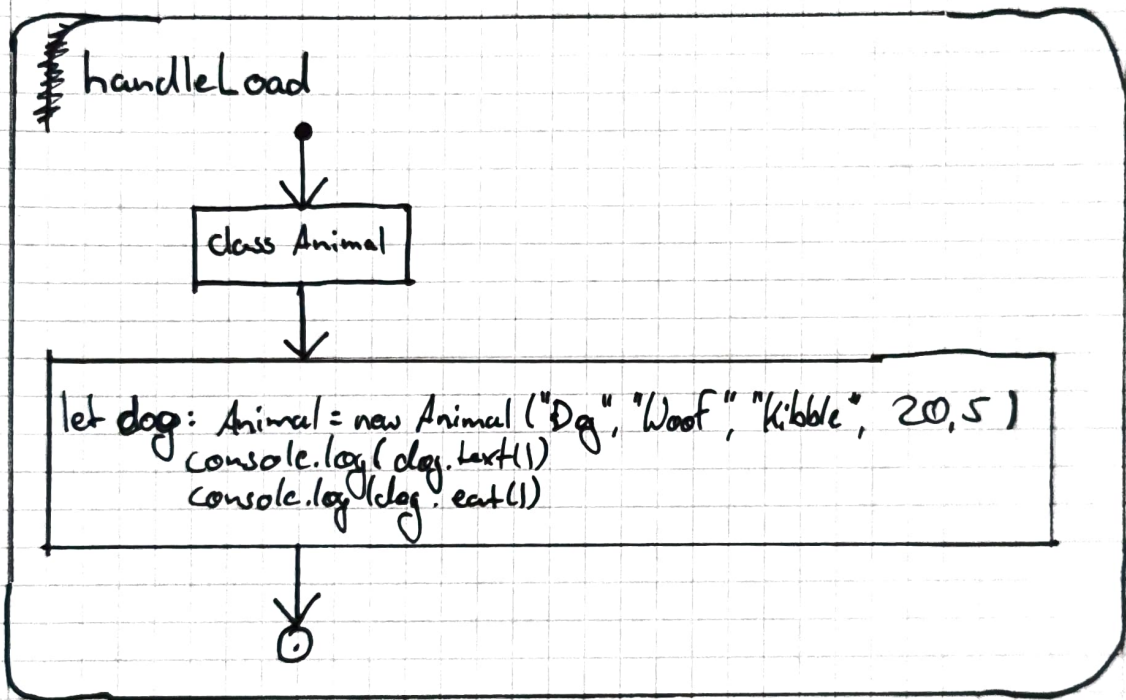 handleLoad
class Animal
let dog: Animal = new Animal ("Dog", "Woof", "Kibble", 20,5)
console.log(dog.text())
console.log(dog.eat())